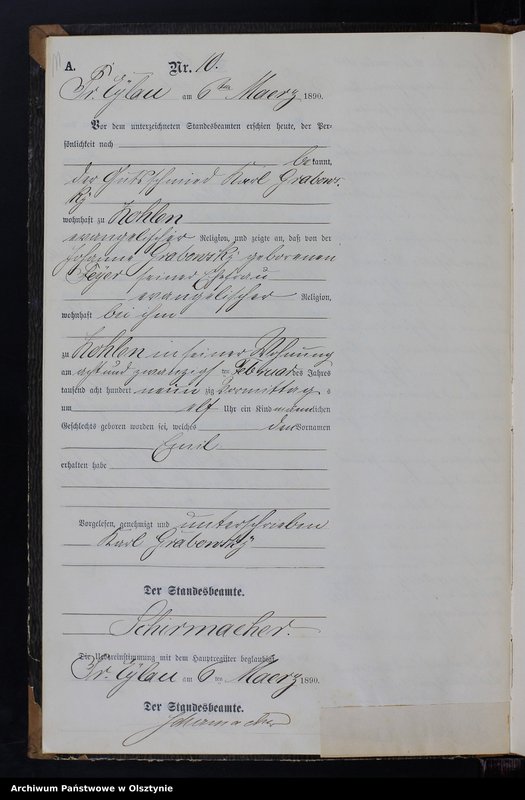 A.
Nr. 10.
Pr. Eylau am 6ten Maerz 1890.
Vor dem unterzeichneten Standesbeamten erschien heute, der Per-
sönlichkeit nach
bekannt,
der Gutsschmied Karl Grabows-
ky
wohnhaft zu Kohlen
evangelischer Religion, und zeigte an, daß von der
Johanne Grabowsky geborenen
Feyer seiner Ehefrau
evangelischer Religion,
wohnhaft bei ihm
zu Kohlen in seiner Wohnung
am acht und zwanzigsten Februar des Jahres
tausend acht hundert neunzig Vormittags
um elf Uhr ein Kind männlichen
Geschlechts geboren worden sei, welches den Vornamen
Emil
erhalten habe
Vorgelesen, genehmigt und unterschrieben
Karl Grabowsky
Der Standesbeamte.
Schirmacher.
Die Uebereinstimmung mit dem Hauptregister beglaubigt
Pr. Eylau am 6ten Maerz 1890.
Der Standesbeamte.
Schirmacher
Archiwum Państwowe w Olsztynie